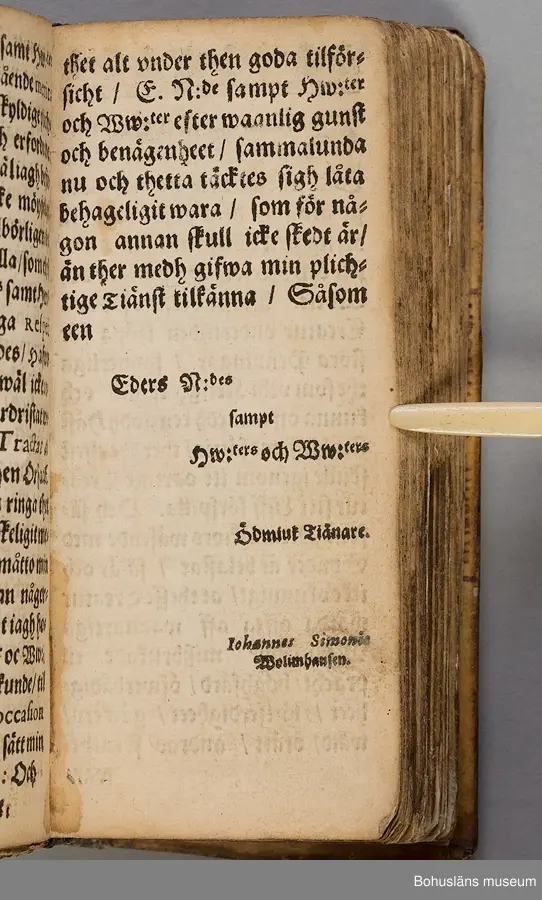 samt
ående
skyldige
h erfor
äliagh
ke mö
börligen
lla/som
samt
ga Re
des/
wäl icke
rdrista
Tracta
en
ringa
skeligit
måtto
an någe
t iagh
oc Ww:
kunde/til
occasion
sätt min
: Och
thet alt vnder then goda tilför-
sicht / E. N:de sampt Hw:ter
och Ww:ter efter waanlig gunst
och benägenheet / sammalunda
nu och thetta täcktes sigh låta
behageligit wara / som för nå-
gon annan skull icke skedt är/
än ther medh gifwa min plich-
tige Tiänst tilkänna / Såsom
een
Eders N:des
sampt
Hw:ters och Ww:ters
Ödmiuk Tiänare.
Iohannes Simonis
Wolimhausen.
Bohusläns museum